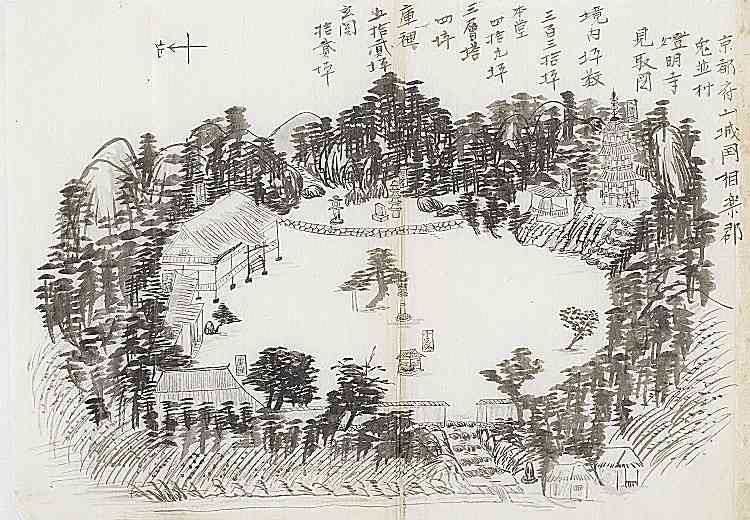 京都府山城国相楽郡
兎並村
燈明寺
見取図
境内坪数
三百三拾坪
本堂
四拾九坪
三層塔
四坪
庫裡
五拾貳坪
玄関
拾貳坪
北